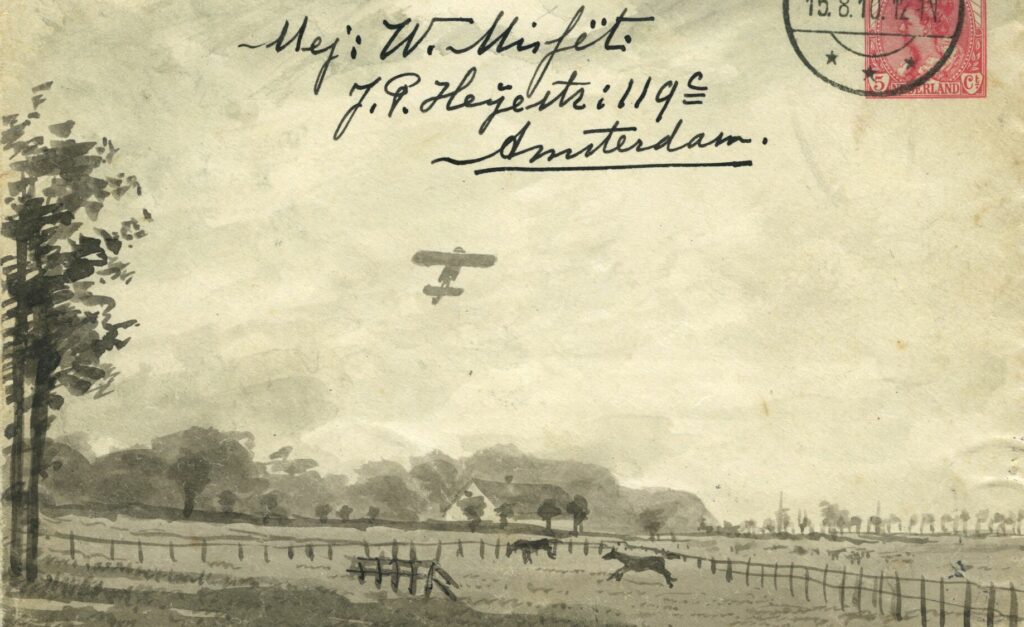 Mej: W. Misfët.
J. P. Heÿestr: 119c
Amsterdam.
15.8.10.12-1N
5 NEDERLAND Ct